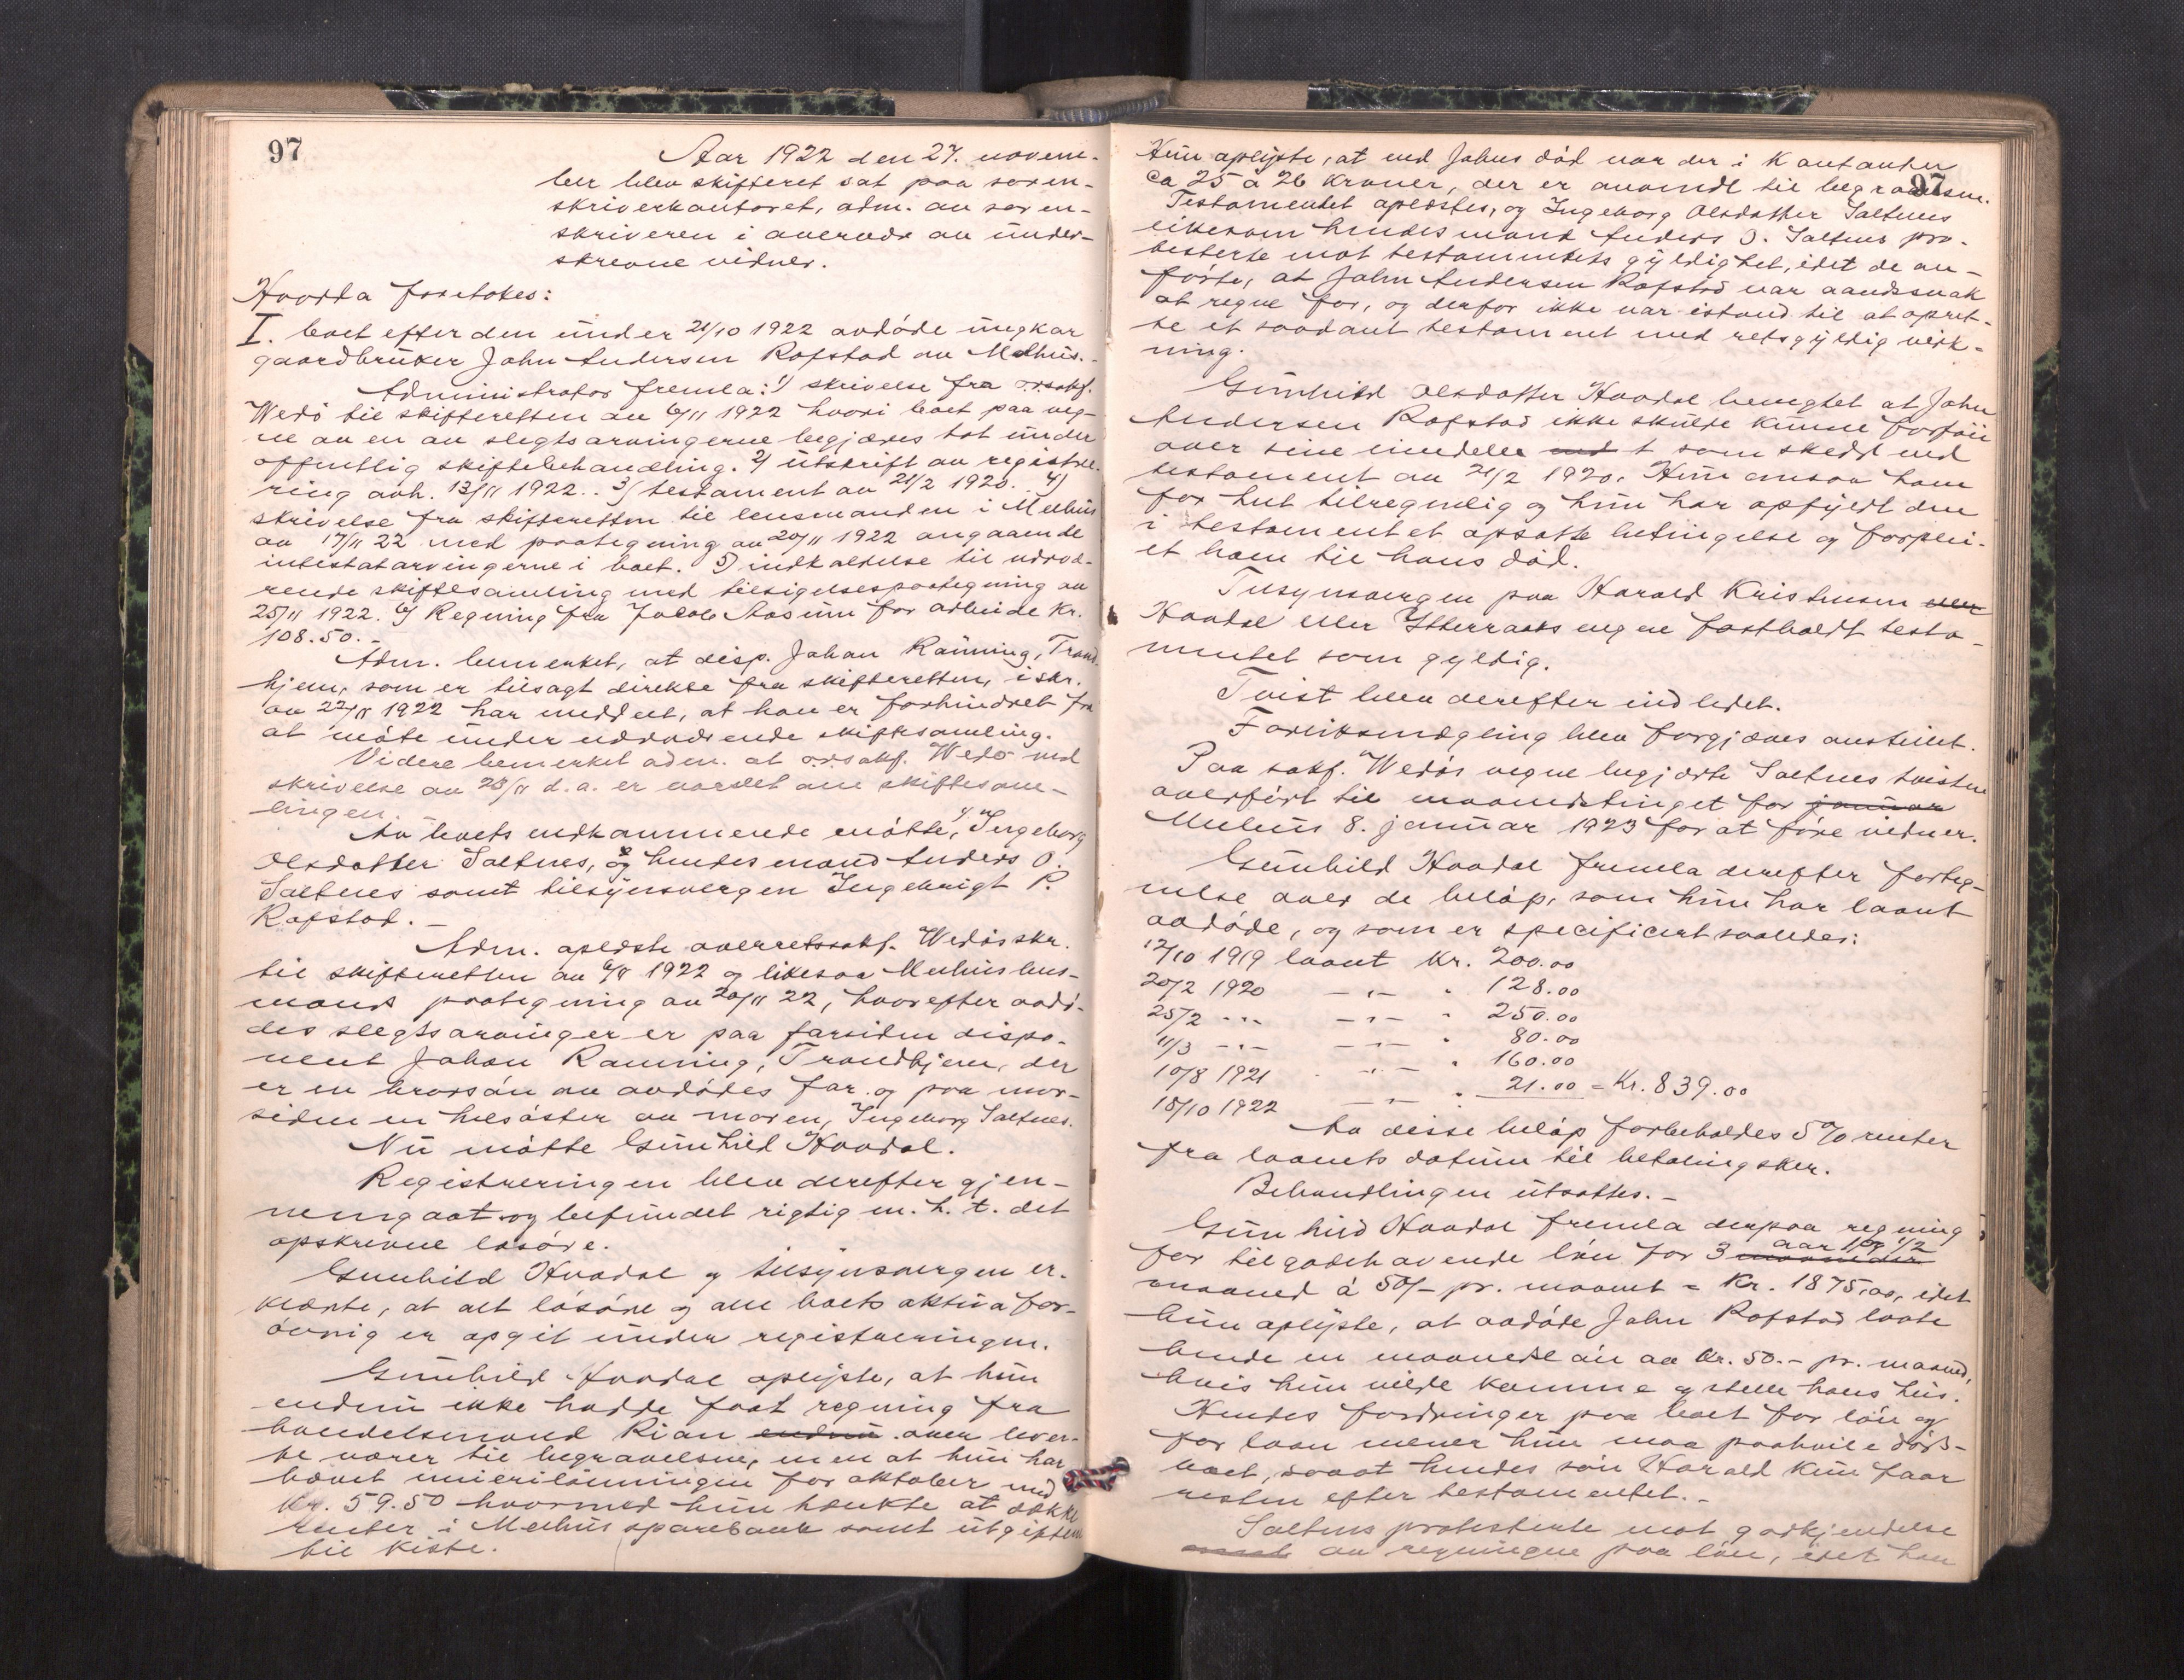 97
Aar 1922 den 27. novem-
ber blev skifteret sat paa soren-
skriverkontoret, adm. av soren-
skriveren i overvær av under-
skrevne vidner.
Hvorda foretokes:
I. boet efter den under 21/10 1922 avdøde ungkar
gaardbruker John Andersen Rofstad av Melhus.-
Administrator fremla: 1) skrivelse fra o.r.sakf.
Wedø til skifteretten av 6/11 1922 hvori boet paa veg-
ne av en av slegtsarvingerne begjæres tat under
offentlig skiftebehandling. 2) utskrift av registre-
ring avh. 13/11 1922.. 3) testament av 21/2 1920. 4)
skrivelse fra skifteretten til lensmanden i Melhus
av 17/11 22 med paategning av 20/11 1922 angaaende
intestatarvingerne i boet. 5) indkaldelse til nærvæ-
rende skiftesamling med tilsigelsespaategning av
25/11 1922. 6) Regning fra Jakob Aasum for arbeide Kr.
108.50.-
Adm. bemerket, at disp. Johan Ranning, Trond-
hjem, som er tilsagt direkte fra skifteretten, i skr.
av 22/11 1922 har meddelt, at han er forhindret fra
at møte under nærværende skiftesamling.
Videre bemerket adm. at o.r.sakf. Wedø ved
skrivelse av 23/11 d.a. er varslet om skiftesam-
lingen.
Av boets vedkommende møtte, Ingeborg
Olsdatter Saltnes, og hendes mand Anders O.
Saltnes samt tilsynsvergen Ingebrigt P.
Rofstad. -
Adm. oplæste overretssakf. Wedøs skr.
til skifteretten av 6/11 1922 og likesaa Melhus lens-
mands paategning av 20/11 22, hvorefter avdø-
des slegtsarvinger er paa farsiden dispo-
nent Johan Ranning, Trondhjem, der
er en brorsøn av avdødes far og paa mor-
siden en helsøster av moren, Ingeborg Saltnes.
Nu møtte Gunhild Hovdal.
Registreringen blev derefter gjen-
nemgaat og befundet rigtig m. h. t. det
opskrevne løsøre.
Gunhild Hovdal og tilsynsvergen er-
klærte, at alt løsøre og alle boets aktiva for-
øvrig er opgit under registreringen.
Gunhild Hovdal oplyste, at hun
endnu ikke hadde faat regning fra
handelsmand Rian endnu over lever-
te varer til begravelsen, men at hun har
hævet meierilønningen for oktober med
Kr. 59.50 hvormed hun tænkte at dække
renter i Melhus sparebank samt utgiften
til kiste.
97
Hun oplyste, at ved Johns død var der i kontanter
ca 25 a 26 kroner, der er anvendt til begravelsen.
Testamentet oplæstes, og Ingeborg Olsdatter Saltnes
likesom hendes mand Anders O. Saltnes pro-
testerte mot testamentets gyldighet, idet de an-
førte, at John Andersen Rofstad var aandssvak
at regne for, og derfor ikke var istand til at opret-
te et saadant testament med retsgyldig virk-
ning.
Gunhild Olsdatter Hovdal benegtet at John
Andersen Rofstad ikke skulde kunne forføie
over sine eiendeler ved t som skedd ved
testament av 21/2 1920. Hun ansaa ham
for helt tilregnelig og hun har opfyldt den
i testamentet opsatte betingelse og forplei-
et ham til hans død.
Tilsynsvergen paa Harald Kristensen eller
Hovdal eller Ytterraas vegne fastholdt testa-
mentet som gyldig.
Tvist blev derefter indledet.
Forliksmegling blev forgjæves anstillet.
Paa sakf. Wedøs vegne begjærte Saltnes tvisten
overført til maanedstinget for januar
Melhus 8. januar 1923 for at føre vidner.
Gunhild Hovdal fremla derefter forteg-
nelse over de beløp, som hun har laant
avdøde, og som er specificert saaledes:
12/10 1919 laant Kr. 200.00
20/2 1920 -"- " 128.00
25/2 -"- -"- " 250.00
11/3 -"- -"- " 80.00
10/8 1921 -"- " 160.00
18/10 1922 -"- " 21.00 = Kr. 839.00
Av disse beløp forbeholdes 5% renter
fra laanets datum til betaling sker.
Behandlingen utsattes.-
Gunhild Hovdal fremla derpaa regning
for tilgodehavende løn for 3 maaneder aar 1 og 1/2
maaned á 50/- pr. maaned = Kr. 1875,00, idet
hun oplyste, at avdøde John Rofstad lovte
hende en maanedsløn av Kr. 50.- pr. maaned,
hvis hun vilde komme og stelle hans hus.
Hendes fordringer paa boet for løn og
for laan mener hun maa paahvile døds-
boet, saaat hendes søn Harald kun faar
resten efter testamentet.-
Saltnes protesterte mot godkjendelse
av regningen paa løn, idet han